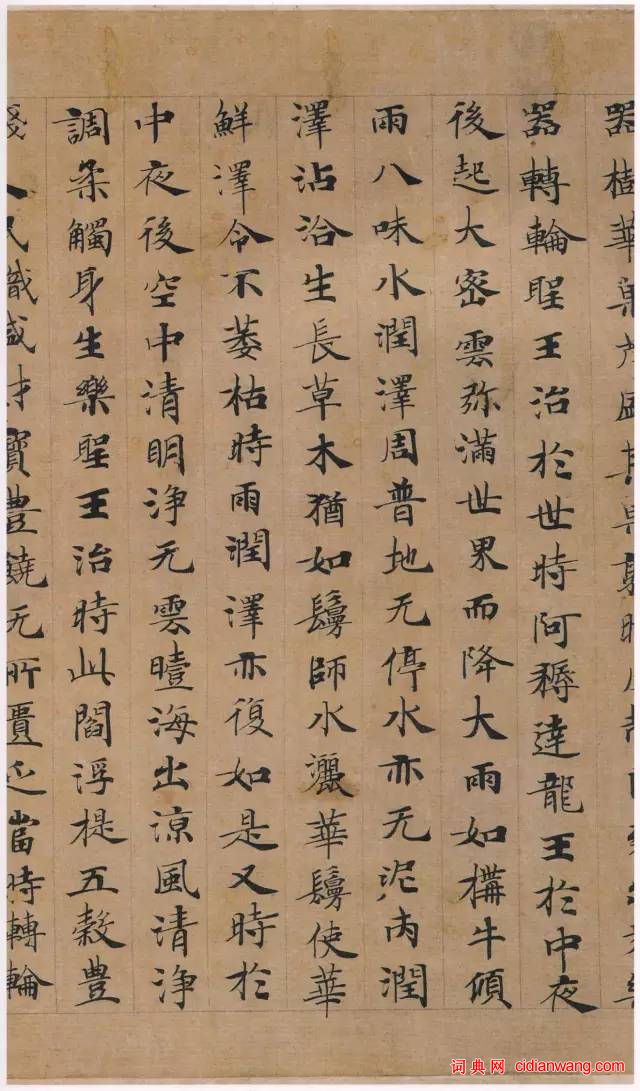 器華
器轉輪聖王治於世時阿耨達龍王於中夜
後起大密雲弥滿世界而降大雨如構牛傾
雨八味水潤澤周普地无停水亦无泥潤
澤沾洽生長草木猶如鬘師水灑華鬘使華
鮮澤令不萎枯時雨潤澤亦復如是又時於
中夜後空中清明浄无雲曀海出涼風清浄
調柔觸身生樂聖王治時此閻浮提五穀豊
賤人民熾盛財寶豊饒无所匱乏當時轉輪
词典网 cidianwang.com